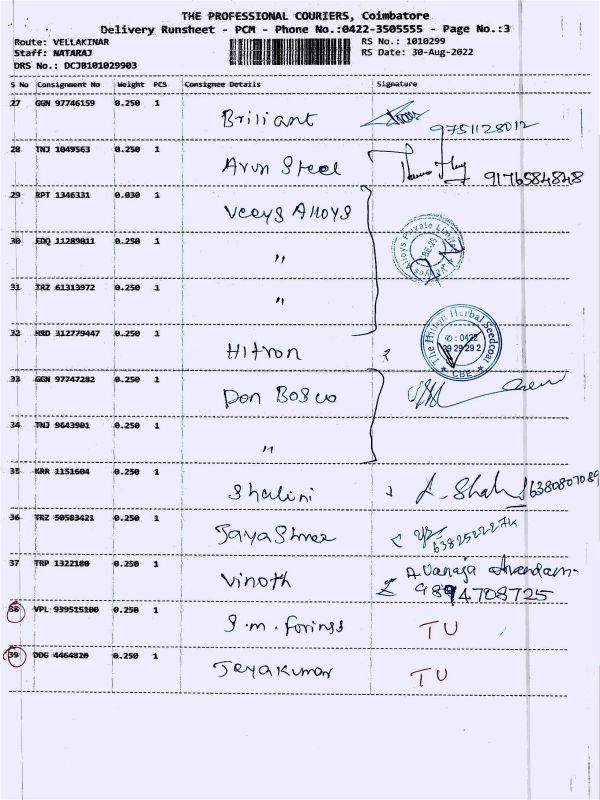 THE PROFESSIONAL COURIERS, Coimbatore
Delivery Runsheet - PCM - Phone No.:0422-3505555 - Page No.:3
Route: VELLAKINAR
Staff: NATARAJ
DRS No.: DCJB101029903
RS No.: 1010299
RS Date: 30-Aug-2022
S No Consignment No Weight PCS Consignee Details Signature
27 GGN 97746159 0.250 1 Briliant 9751128012
28 TNJ 1049563 0.250 1 Arun Steel 9176584848
29 RPT 1346331 0.030 1 Veeys Alloys
30 EDQ 11289011 0.250 1 "
31 TRZ 61313972 0.250 1 "
32 HRD 312779447 0.250 1 Hitron
The Hilton Herbal Seedcoat
✆ : 0422
CBE
33 GGN 97747282 0.250 1 Don Bosco
34 TNJ 9643901 0.250 1 "
35 KRR 1151604 0.250 1 Shalini 6380807089
36 TRZ 50583421 0.250 1 JayaShree
37 TRP 1322180 0.250 1 Vinoth A.Vanaja
9894708725
38 VPL 939515100 0.250 1 S.m. forings TU
39 DDG 4464820 0.250 1 Jeyakumar TU